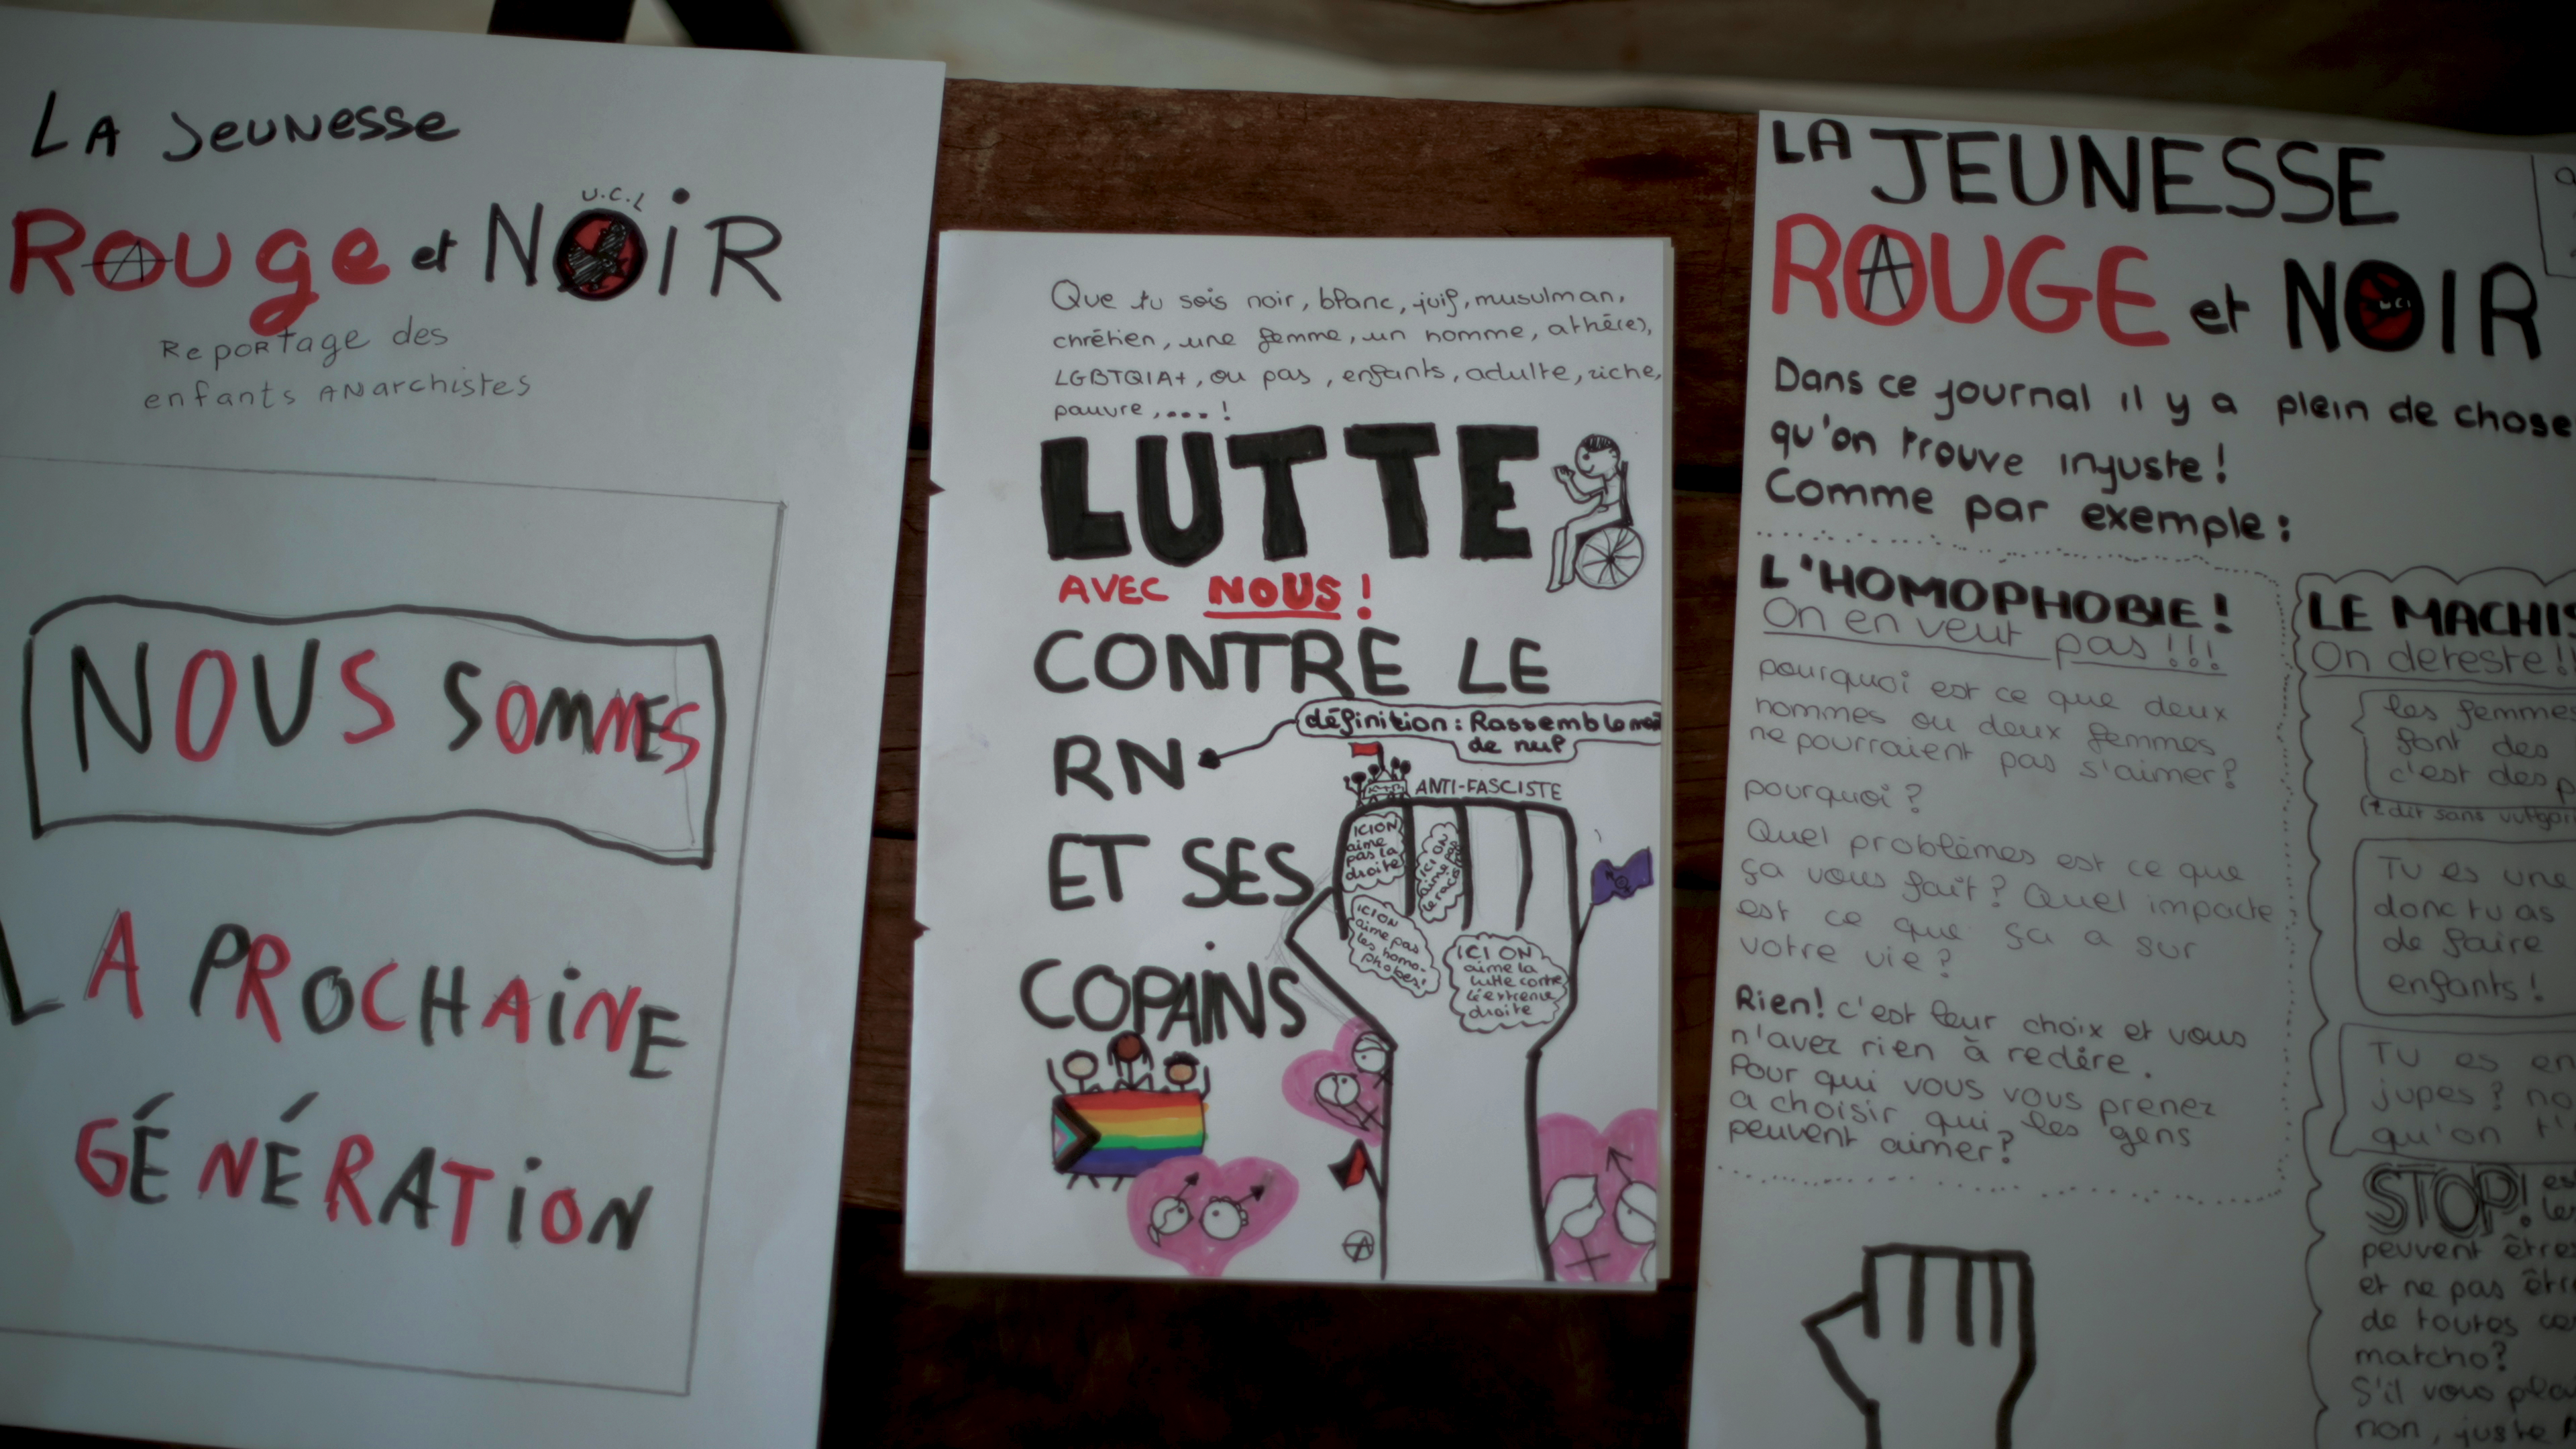 LA JEUNESSE
ROUGE et NOIR
U.C.L
Reportage des
enfants ANarchistes
NOUS SOMMES
LA PROCHAINE
GÉNÉRATION
Que tu sois noir, blanc, juif, musulman,
chrétien, une femme, un homme, athée(e),
LGBTQIA+, ou pas, enfants, adulte, riche,
pauvre,....!
LUTTE
AVEC NOUS!
CONTRE LE
RN
définition: Rassemblement
de nul
ET SES
COPAINS
ANTI-FASCISTE
ICI ON
aime
pas la
droite
ICI ON
aime pas
le racisme
ICI ON
aime pas
les homo-
phobes!
ICI ON
aime la
lutte contre
l'extreme
droite
LA JEUNESSE
ROUGE et NOIR
Dans ce journal il y a plein de chose
qu'on trouve injuste!
Comme par exemple:
L'HOMOPHOBIE!
On en veut pas!!!
pourquoi est ce que deux
hommes ou deux femmes
ne pourraient pas s'aimer?
pourquoi?
Quel problèmes est ce que
ça vous fait? Quel impacte
est ce que ça a sur
votre vie?
Rien! c'est leur choix et vous
n'avez rien à redire.
Pour qui vous vous prenez
a choisir qui les gens
peuvent aimer?
LE MACHIS
On déteste!!
les femmes
font des
c'est des p
TU es une
donc tu as
de faire
enfants!
TU es en
jupes? no
qu'on t'
STOP! es
les
peuvent êtres
et ne pas être
de toutes ce
matcho?
S'il vous plai
non, juste